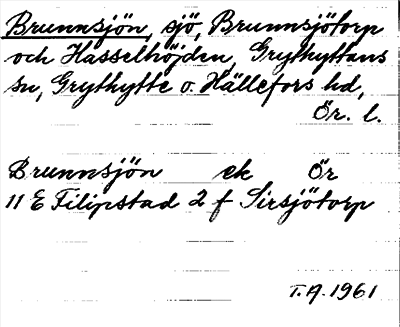 Brunnsjön, sjö, Brunnsjötorp
och Hasselhöjden, Grythyttans
sn, Grythytte o. Hällefors hd,
Ör. l.
Brunnsjön ek Ör
11 E Filipstad 2 f Sirsjötorp
T.A. 1961